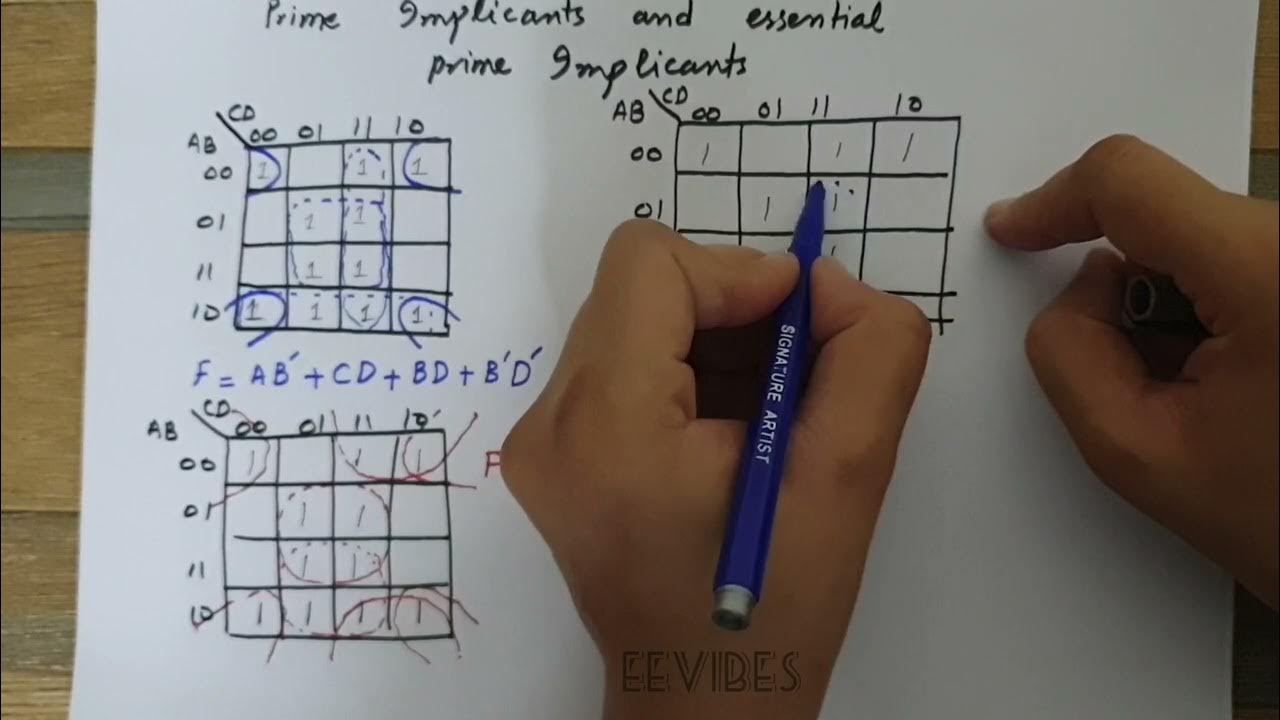 Prime Implicants and essential
prime Implicants
CD
AB
00 01 11 10
00 1 1 1
01 1 1
11 1 1
10 1 1 1 1
F = AB' + CD + BD + B'D'
CD
AB
00 01 11 10'
00 1 1 1
01 1 1
11 1 1
10 1 1 1 1
F
AB CD
00 01 11 10
00 1 1 1
01 1 1
1
SIGNATURE ARTIST
EEVIBES